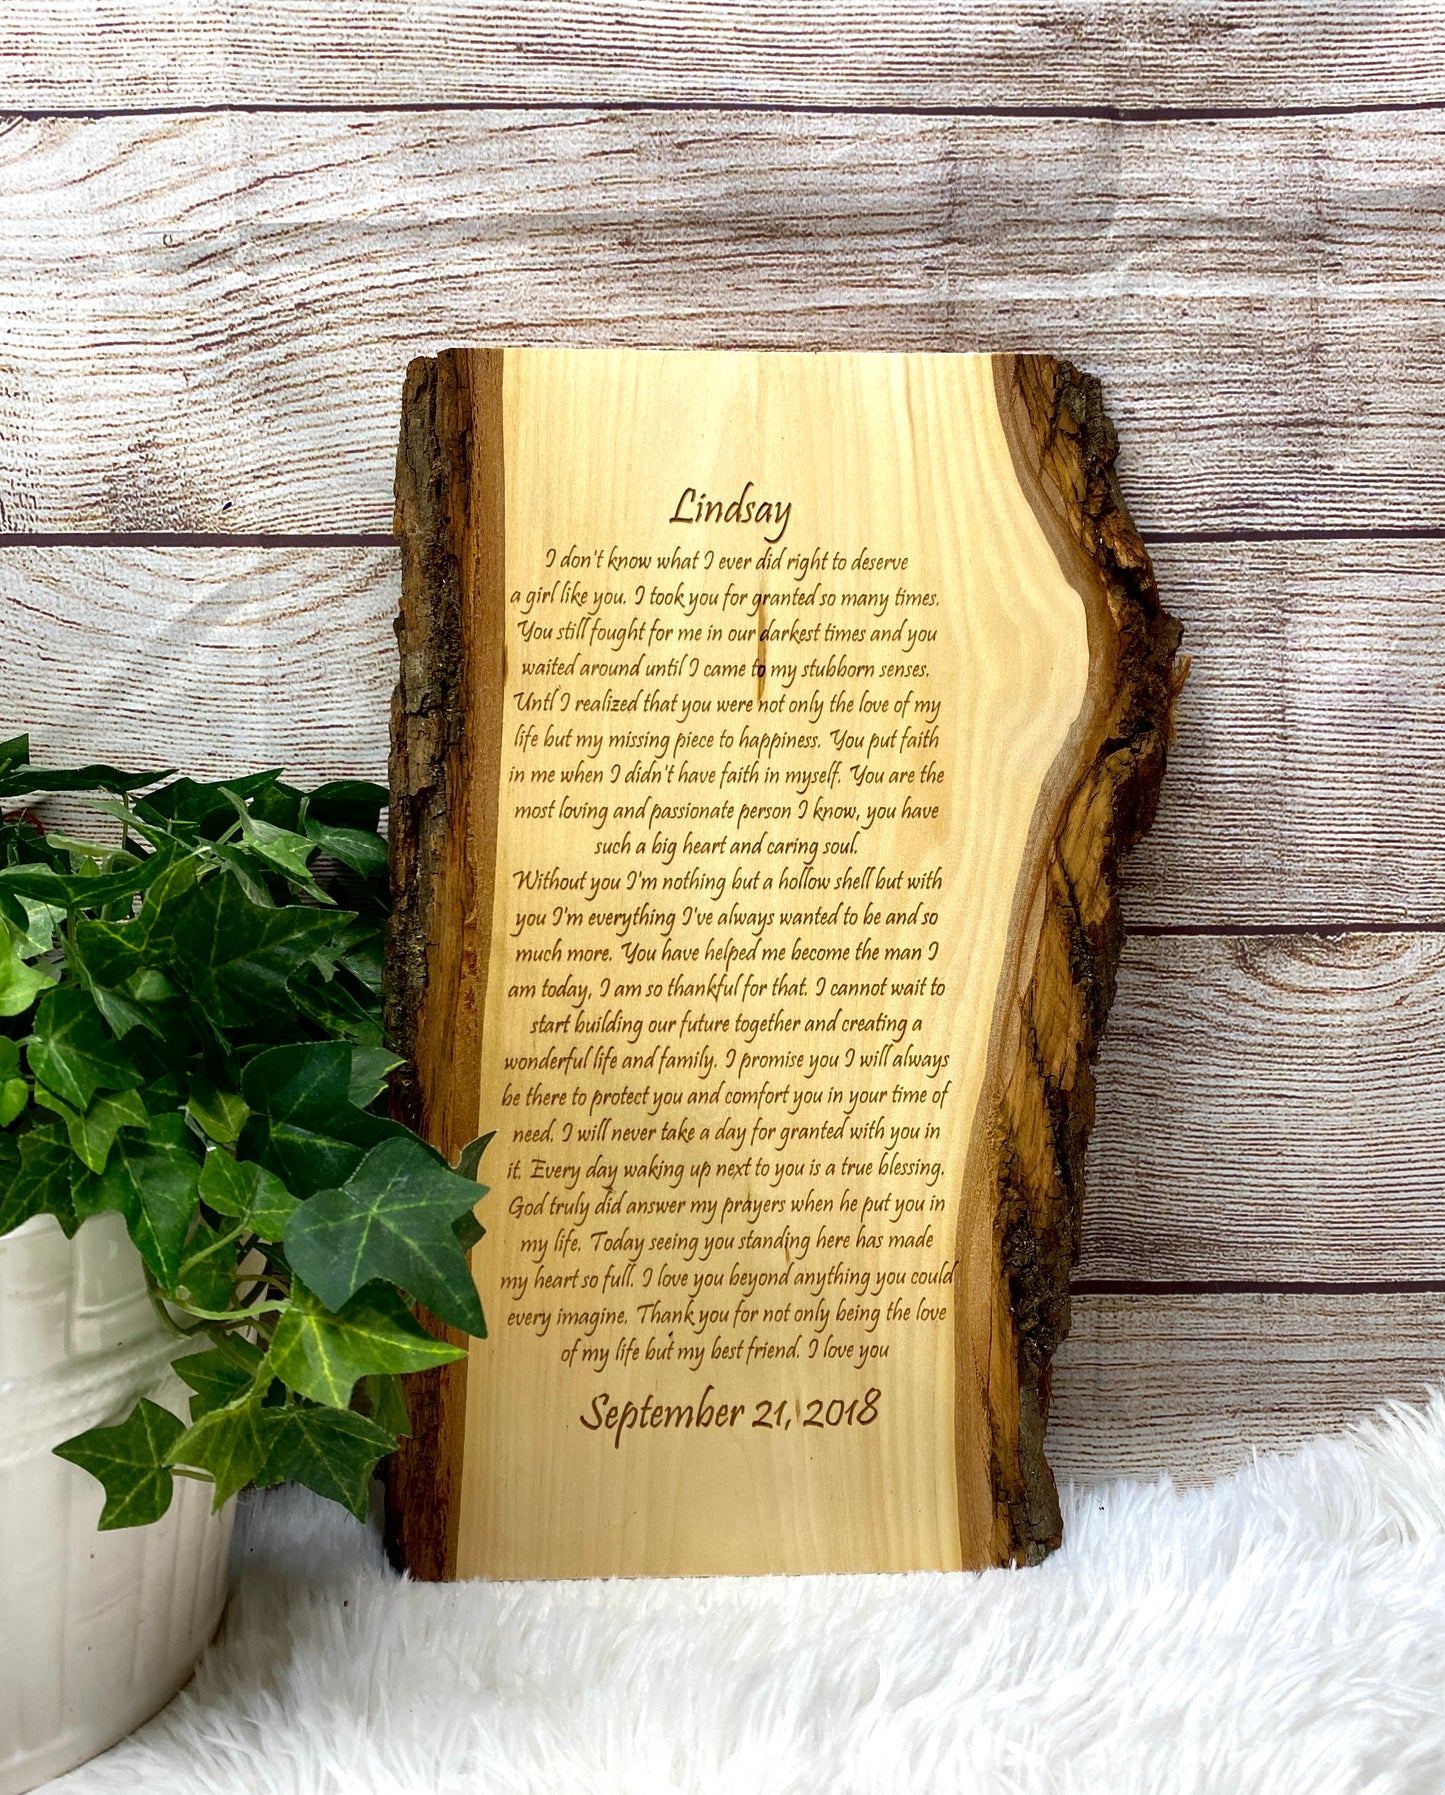 Lindsay
I don't know what I ever did right to deserve
a girl like you. I took you for granted so many times.
You still fought for me in our darkest times and you
waited around until I came to my stubborn senses.
Untl I realized that you were not only the love of my
life but my missing piece to happiness. You put faith
in me when I didn't have faith in myself. You are the
most loving and passionate person I know, you have
such a big heart and caring soul.
Without you I'm nothing but a hollow shell but with
you I'm everything I've always wanted to be and so
much more. You have helped me become the man I
am today, I am so thankful for that. I cannot wait to
start building our future together and creating a
wonderful life and family. I promise you I will always
be there to protect you and comfort you in your time of
need. I will never take a day for granted with you in
it. Every day waking up next to you is a true blessing.
God truly did answer my prayers when he put you in
my life. Today seeing you standing here has made
my heart so full. I love you beyond anything you could
every imagine. Thank you for not only being the love
of my life but my best friend. I love you
September 21, 2018